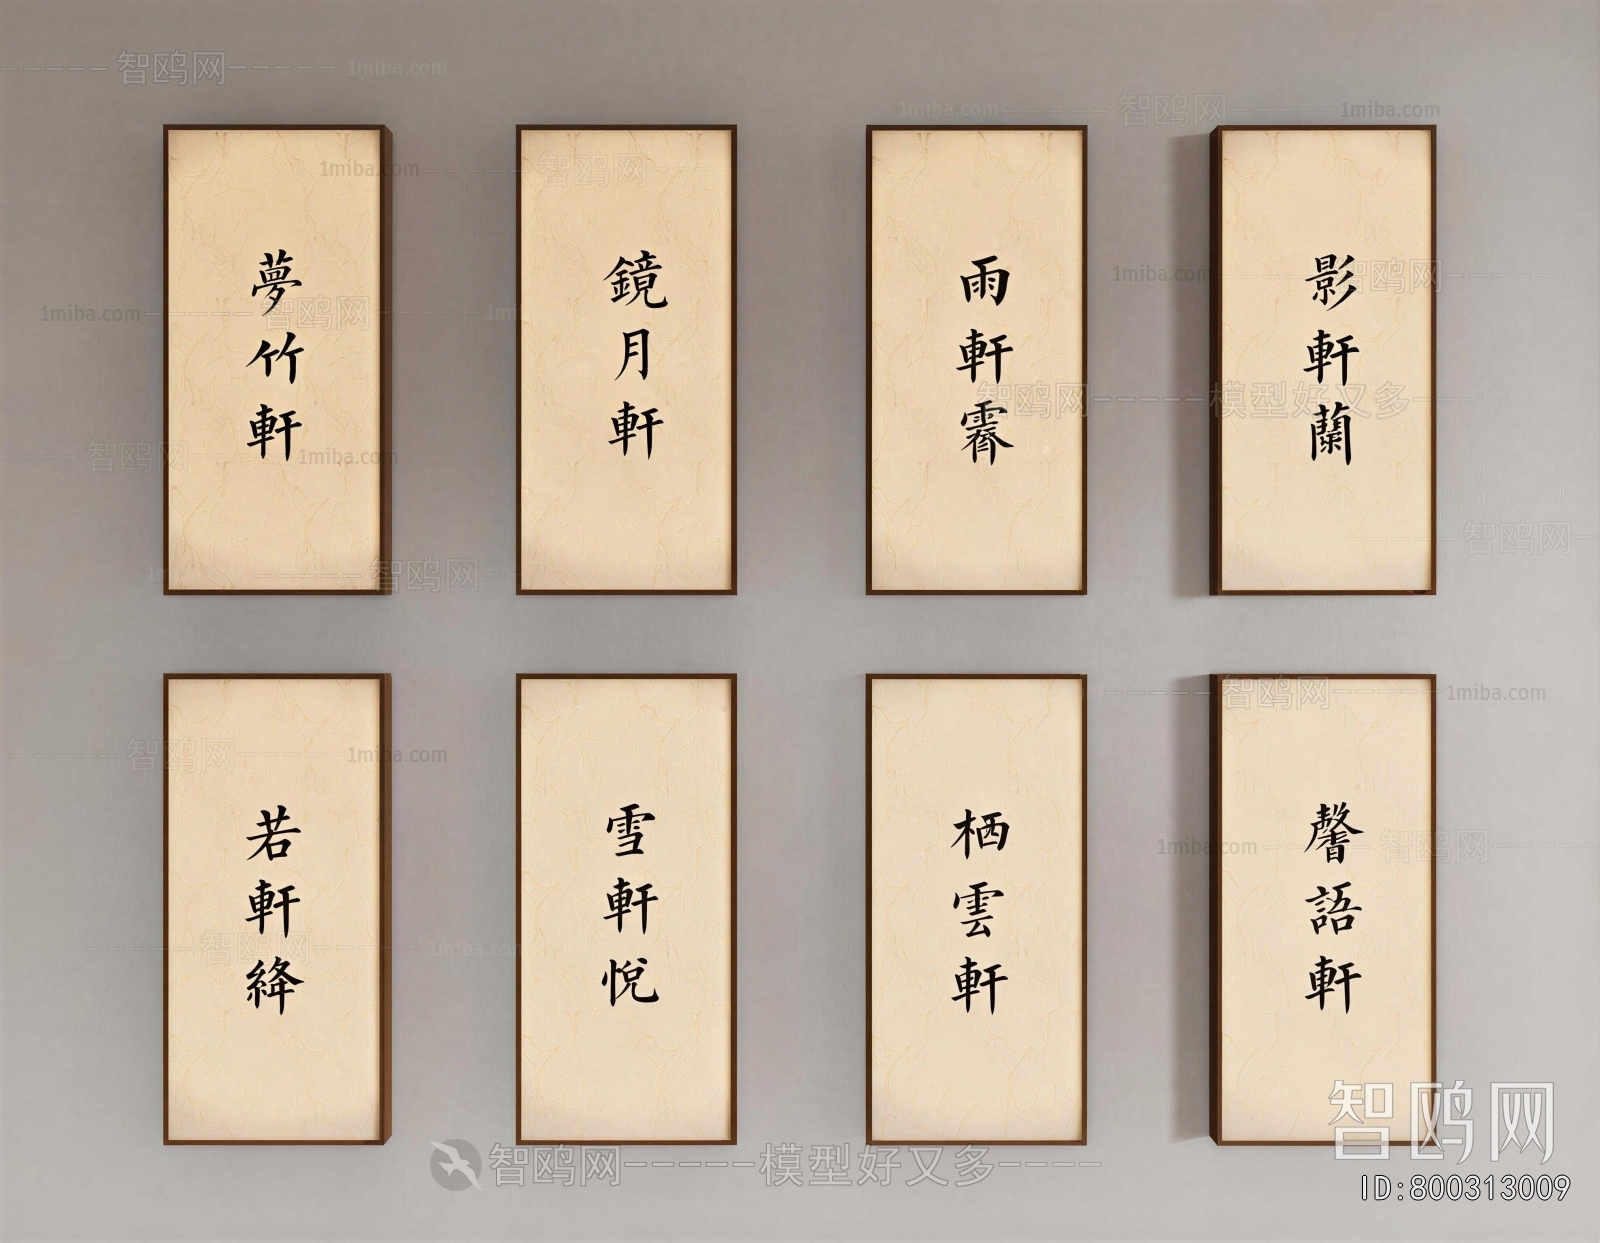 夢竹軒
鏡月軒
雨軒霽
影軒蘭
若軒絳
雪軒悅
栖雲軒
馨語軒
智鸥网
1miba.com
智鸥网-----模型好又多----
智鸥网
ID:800313009